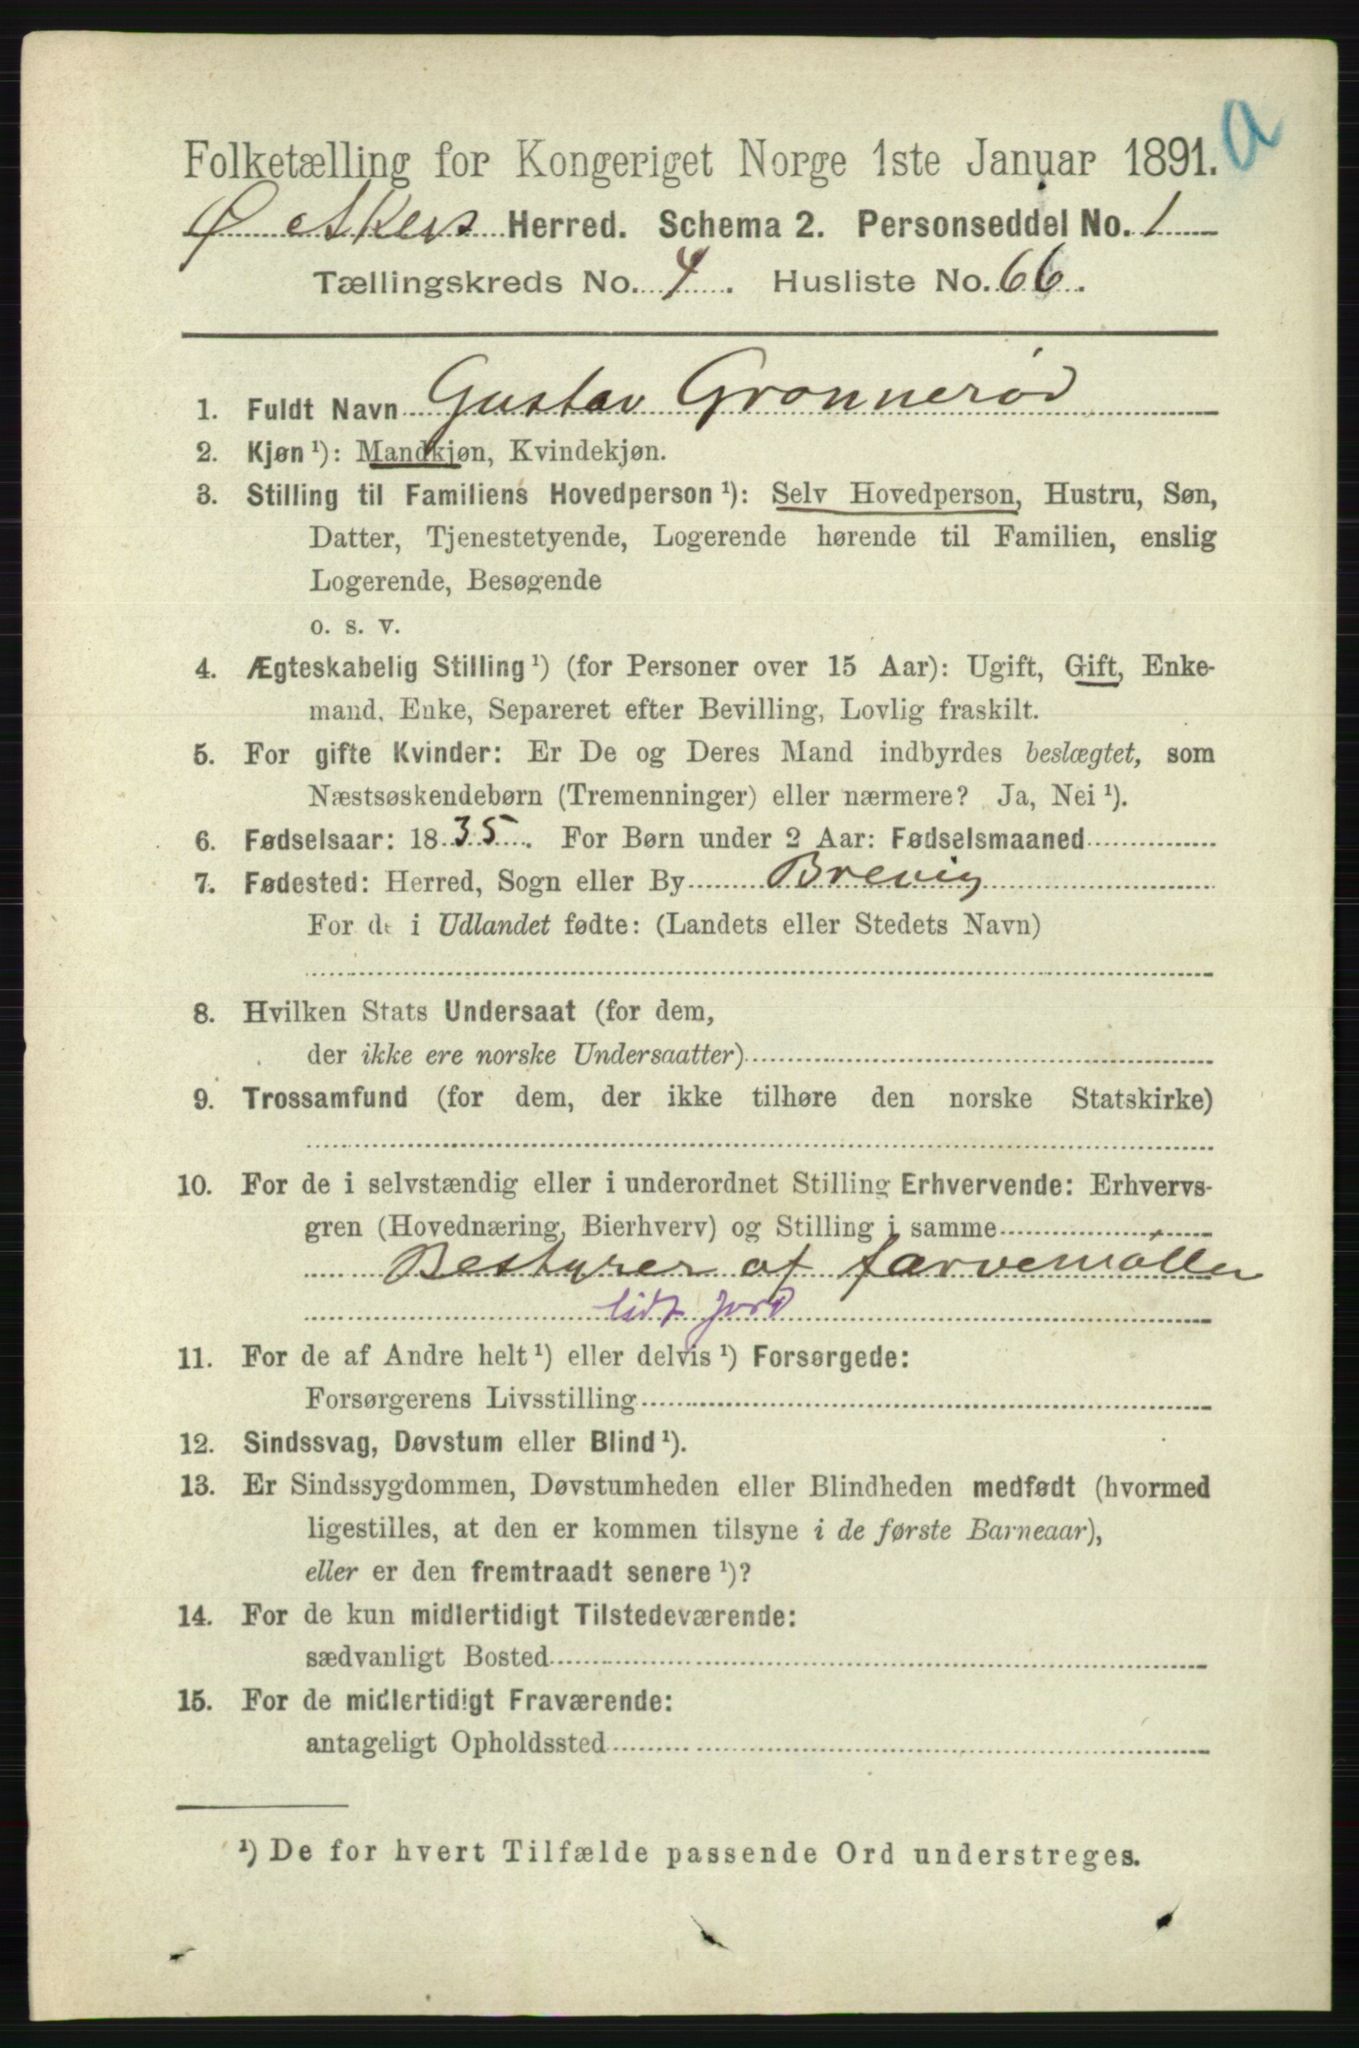 a
Folketælling for Kongeriget Norge 1ste Januar 1891.
Ø Eskers Herred. Schema 2. Personseddel No. 1
Tællingskreds No. 4. Husliste No. 66.
1. Fuldt Navn Gustav Gronnerød
2. Kjøn ¹): Mandkjøn, Kvindekjøn.
3. Stilling til Familiens Hovedperson ¹): Selv Hovedperson, Hustru, Søn,
Datter, Tjenestetyende, Logerende hørende til Familien, enslig
Logerende, Besøgende
o. s. v.
4. Ægteskabelig Stilling ¹) (for Personer over 15 Aar): Ugift, Gift, Enke-
mand, Enke, Separeret efter Bevilling, Lovlig fraskilt.
5. For gifte Kvinder: Er De og Deres Mand indbyrdes beslægtet, som
Næstsøskendebørn (Tremenninger) eller nærmere? Ja, Nei ¹).
6. Fødselsaar: 1835. For Børn under 2 Aar: Fødselsmaaned
7. Fødested: Herred, Sogn eller By Brevig
For de i Udlandet fødte: (Landets eller Stedets Navn)
8. Hvilken Stats Undersaat (for dem,
der ikke ere norske Undersaatter)
9. Trossamfund (for dem, der ikke tilhøre den norske Statskirke)
10. For de i selvstændig eller i underordnet Stilling Erhvervende: Erhvervs-
gren (Hovednæring, Bierhverv) og Stilling i samme
Bestyrer af farvemøllen
lidt jord
11. For de af Andre helt ¹) eller delvis ¹) Forsørgede:
Forsørgerens Livsstilling
12. Sindssvag, Døvstum eller Blind ¹).
13. Er Sindssygdommen, Døvstumheden eller Blindheden medfødt (hvormed
ligestilles, at den er kommen tilsyne i de første Barneaar),
eller er den fremtraadt senere ¹)?
14. For de kun midlertidigt Tilstedeværende:
sædvanligt Bosted
15. For de midlertidigt Fraværende:
antageligt Opholdssted
¹) De for hvert Tilfælde passende Ord understreges.